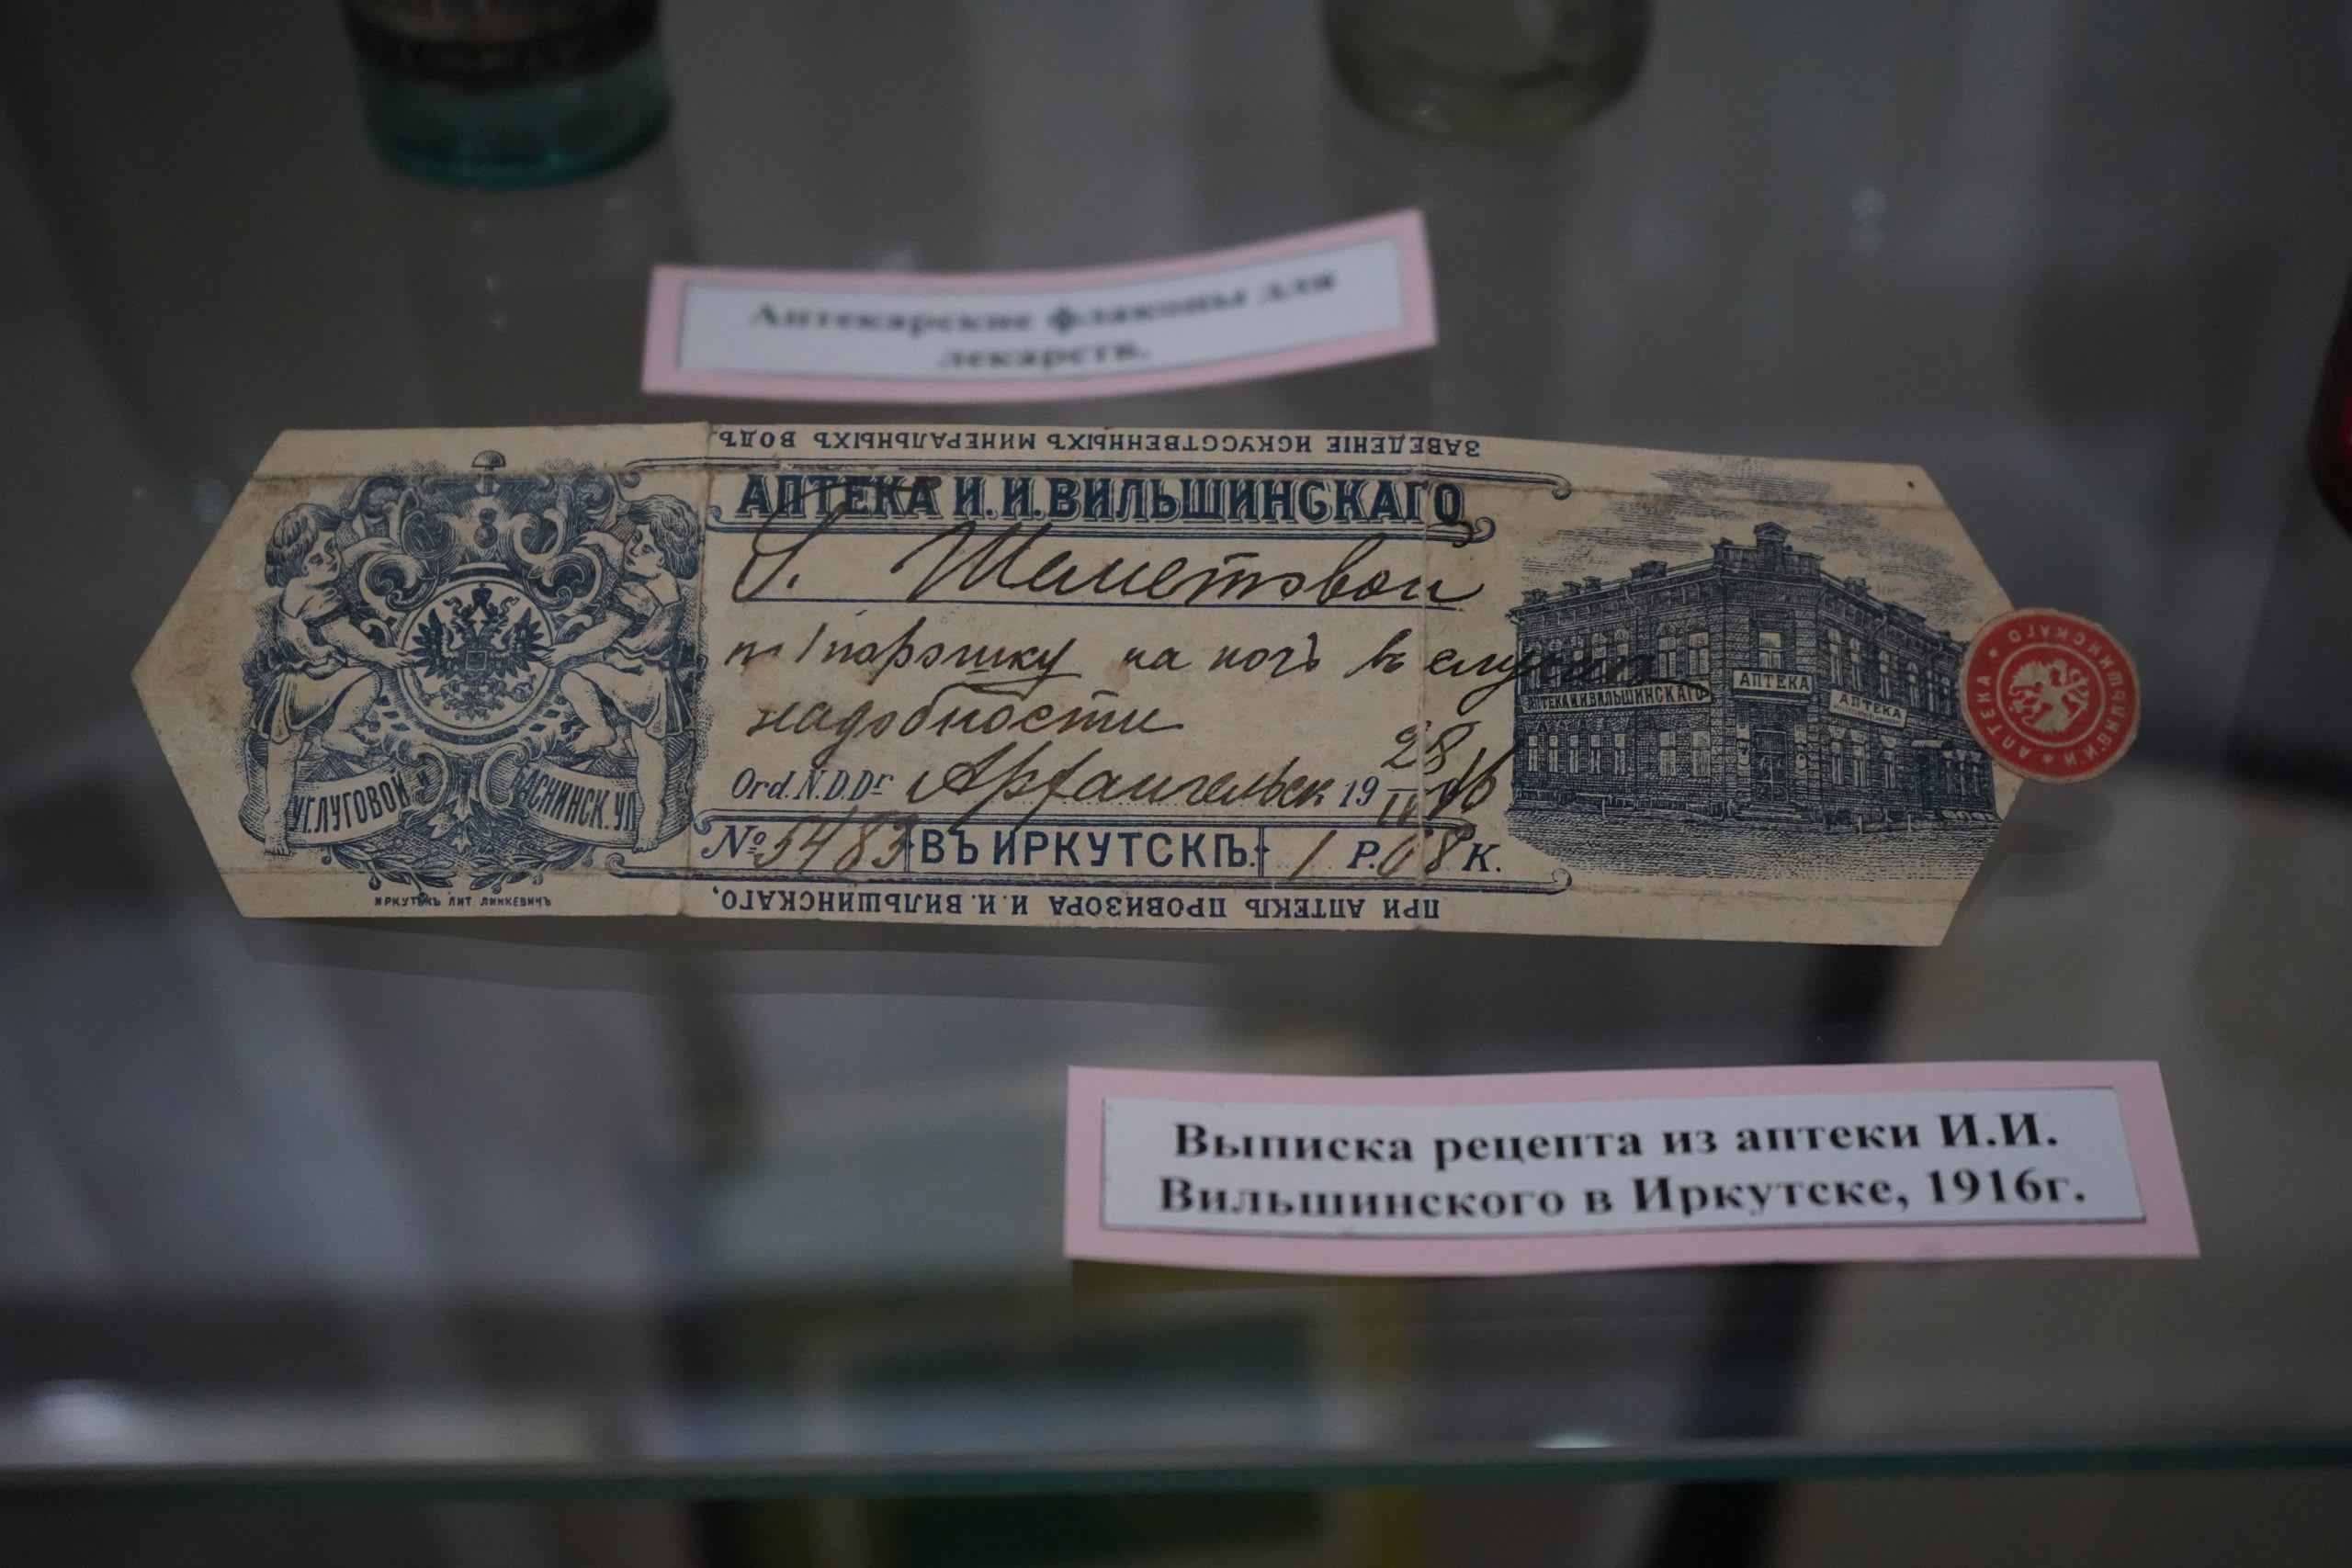 Аптекарские флаконы для
лекарств.
ЗАВЕДЕНІЕ ИСКУССТВЕННЫХЪ МИНЕРАЛЬНЫХЪ ВОДЪ
АПТЕКА И. И. ВИЛЬШИНСКАГО
Шеметовой
по 1 порошку на ночь въ случаѣ
надобности
Ord. N. D. Dr Архангельск 19 28/II 16
№ 5483 ВЪ ИРКУТСКѢ. 1 Р. 68 К.
ПРИ АПТЕКѢ ПРОВИЗОРА И. И. ВИЛЬШИНСКАГО,
УГ. ЛУГОВОЙ И БАСНИНСК. УЛ
ИРКУТСКЪ ЛИТ. ЛИНКЕВИЧЪ
АПТЕКА И.И.ВИЛЬШИНСКАГО
АПТЕКА
АПТЕКА
АПТЕКА И.И. ВИЛЬШИНСКАГО
Выписка рецепта из аптеки И.И.
Вильшинского в Иркутске, 1916г.